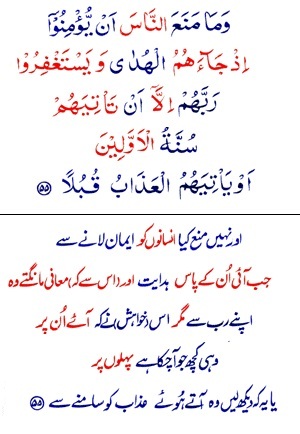 وَمَا مَنَعَ النَّاسَ اَنْ يُّؤْمِنُوْٓا
اِذْ جَآءَهُمُ الْهُدٰى وَ يَسْتَغْفِرُوْا
رَبَّهُمْ اِلَّآ اَنْ تَاْتِيَهُمْ
سُنَّةُ الْاَوَّلِيْنَ
اَوْ يَاْتِيَهُمُ الْعَذَابُ قُبُلًا ۵۵
اور نہیں منع کیا انسانوں کو ایمان لانے سے
جب آئی اُن کے پاس ہدایت اور (اس سے کہ) معافی مانگتے وہ
اپنے رب سے مگر اس (خواہش) نے کہ آئے اُن پر
وہی کچھ جو آچکا ہے پہلوں پر
یا یہ کہ دیکھ لیں وہ آتے ہوئے عذاب کو سامنے سے ۵۵